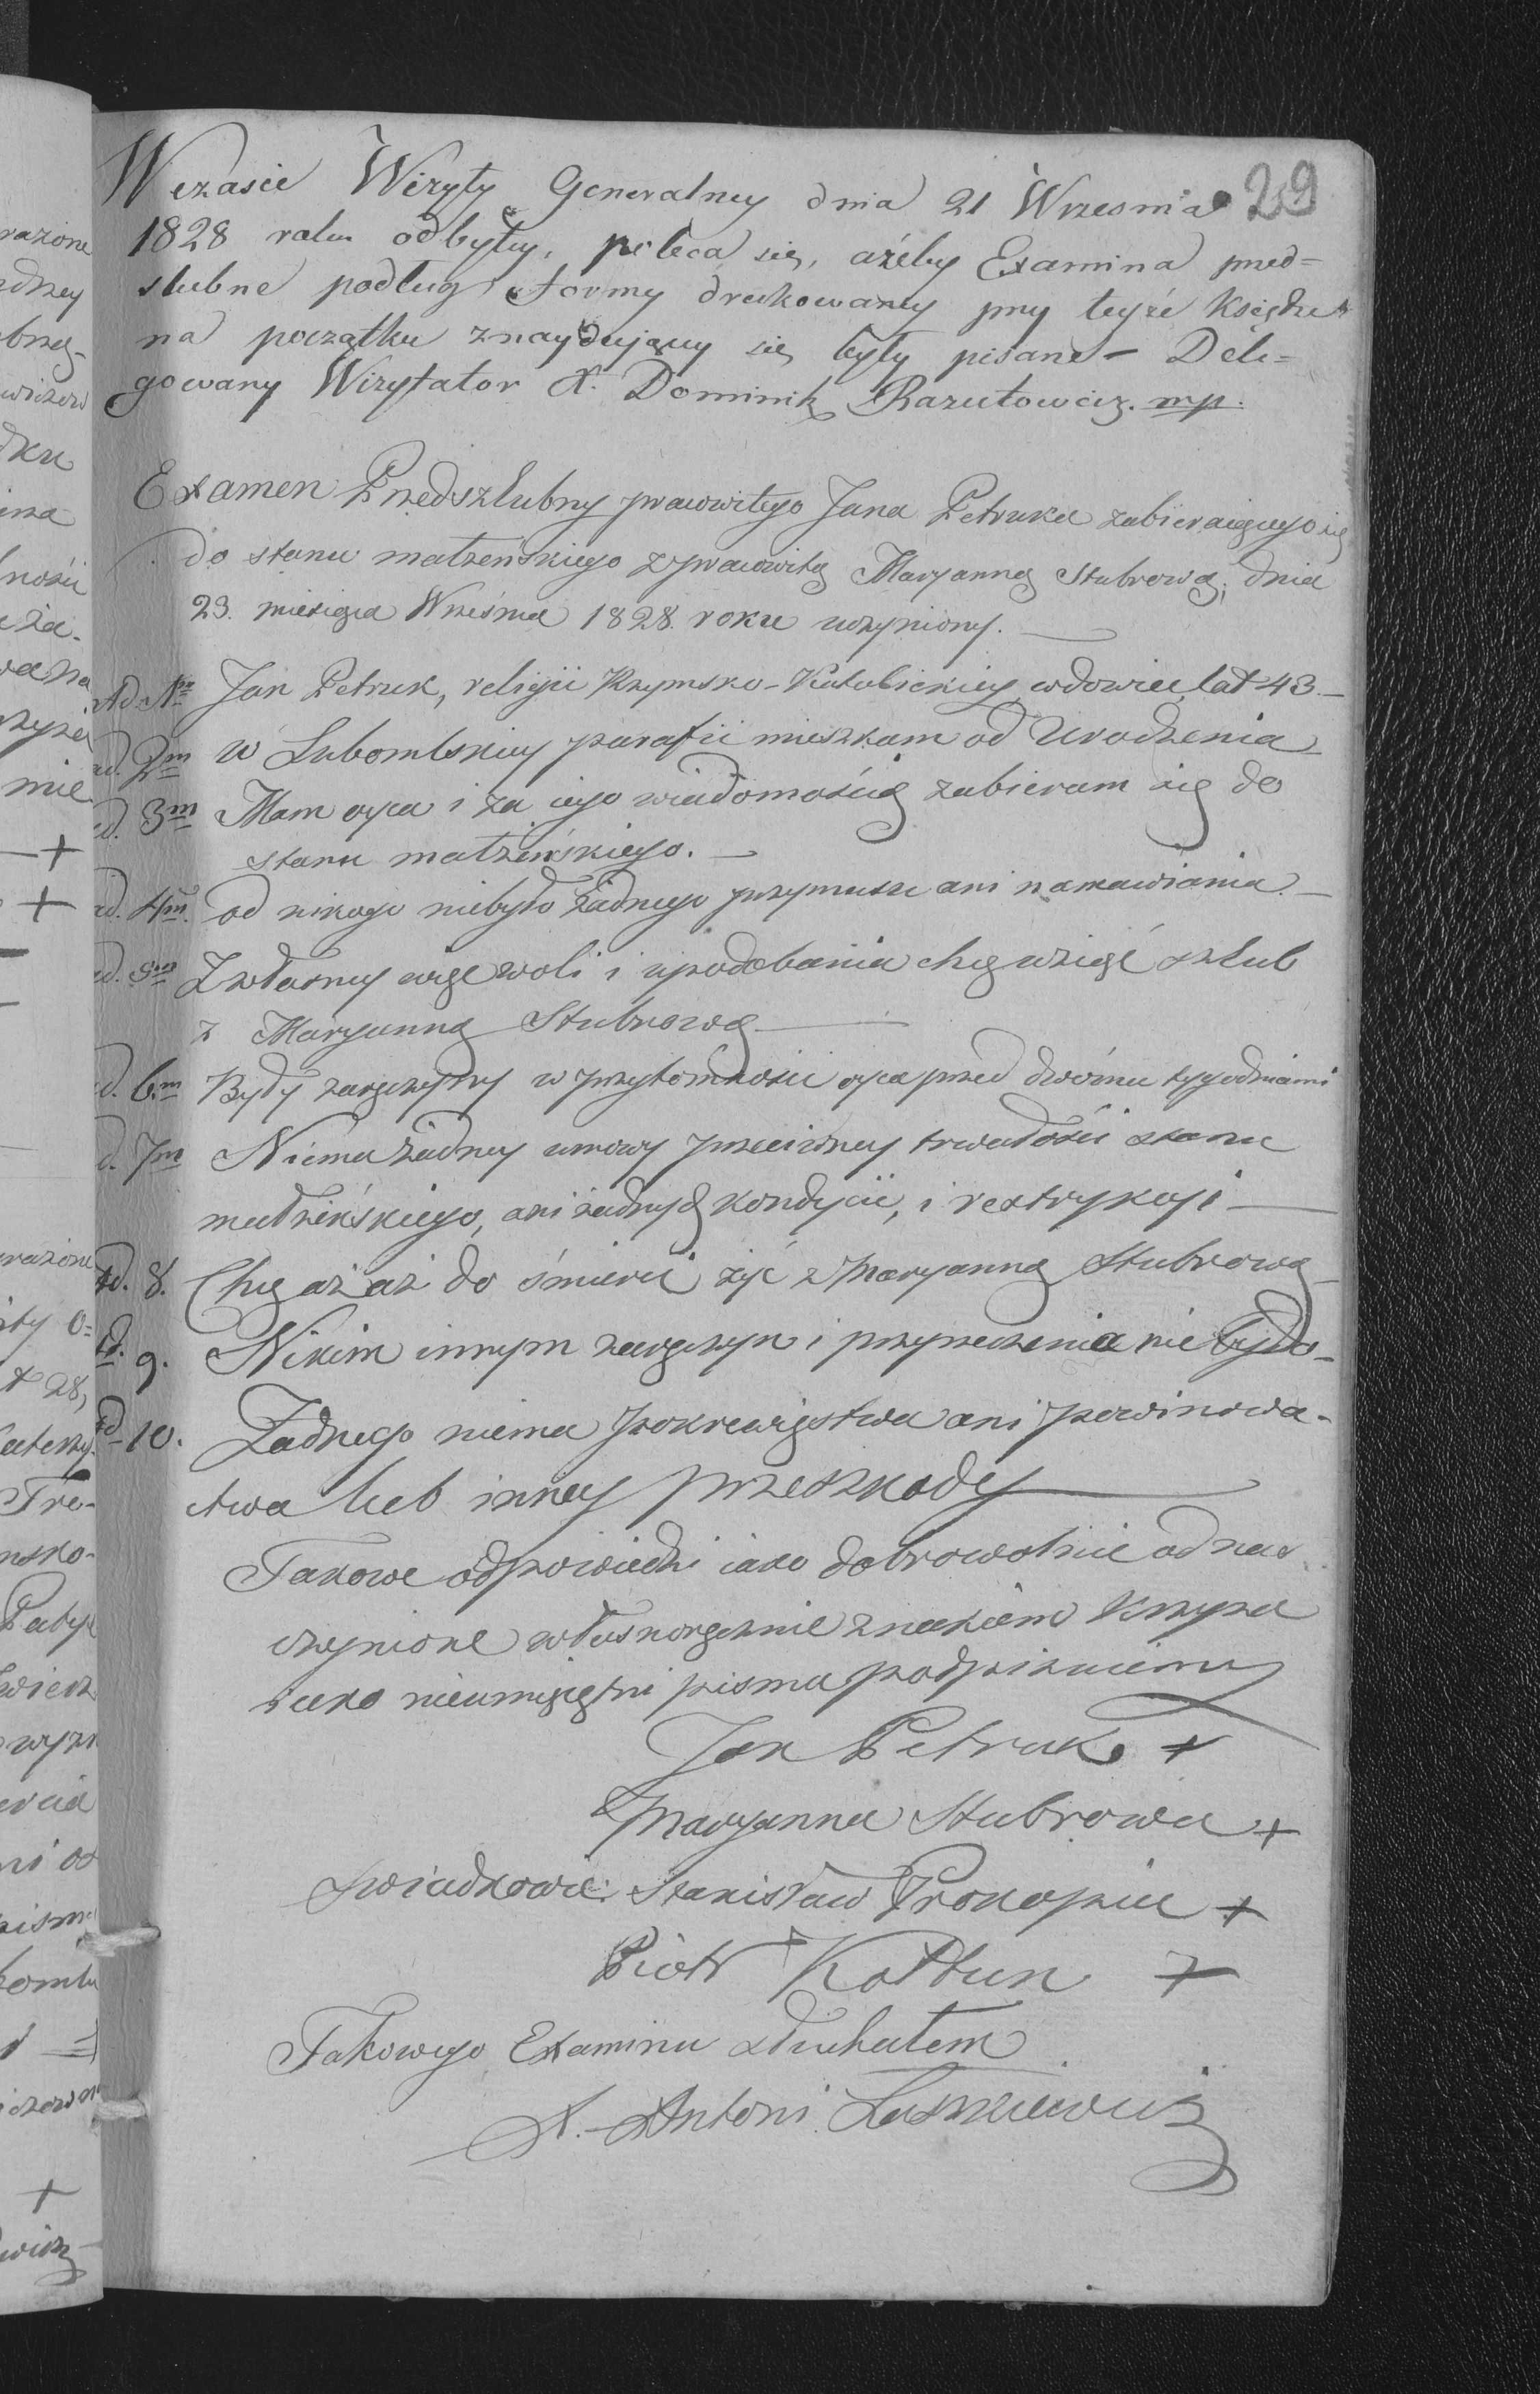 29
Wczasie Wizyty Generalney dnia 21 Wrzesnia
1828 roku odbytey, poleca się, ażeby Examina przed=
slubne podług formy drukowaney przy teyże Księdze
na początku znayduiącey się były pisane – Dele=
gowany Wizytator X. Dominik Razutowicz. mp.
Examen Przedszlubny pracowitego Jana Petruka zabieraiącego się
do stanu małżeńskiego z pracowitą Maryanną Stubrową, dnia
23. miesiąca Wrześnie 1828. roku uczyniony.
Ad 1m Jan Petruk, religii Rzymsko-Katolickiey wdowiec lat 43.
ad. 2m w Lubomlskiey parafii mieszkam od Urodzenia
ad. 3m Mam oyca i za iego wiadomością zabieram się do
stanu małżeńskiego.
ad. 4m. od nikogo niebyło żadnego przymusu ani namawiania
ad. 5m Z własney więc woli i upodobania chcę wziąść szlub
z Maryanną Stubrową
ad. 6m Były zaręczyny w przytomności oyca przed dwóma tygodniami
ad. 7m Niema żadney umowy przeciwney trwałości stanu
małżeńskiego, ani żadnych kondycii, i restrykcyi
ad. 8. Chcę aż aż do śmierci żyć z Maryanną Stubrową
ad. 9. Nikim innym zaręczyn i przyrzeczenia nie było
ad 10. Żadnego niema pokrewięstwa ani powinowa-
ctwa lub inney przeszkody
Takowe odpowiedzi iako dobrowolnie od nas
uczynione własnoręcznie znakiem Krzyża
iako nieumieiętni pisma podpisuiemy
Jan Petruk +
Maryanna Stubrowa +
Swiadkowie: Stanisław Prokopiu +
Piotr Kołtun +
Takowego Examinu słuchałem
X. Antoni Laszkiewicz